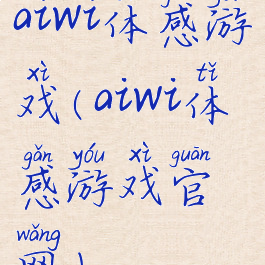 aiwi体感游
xì tǐ
戏(aiwi体
gǎn yóu xì guān
感游戏官
wǎng
网)